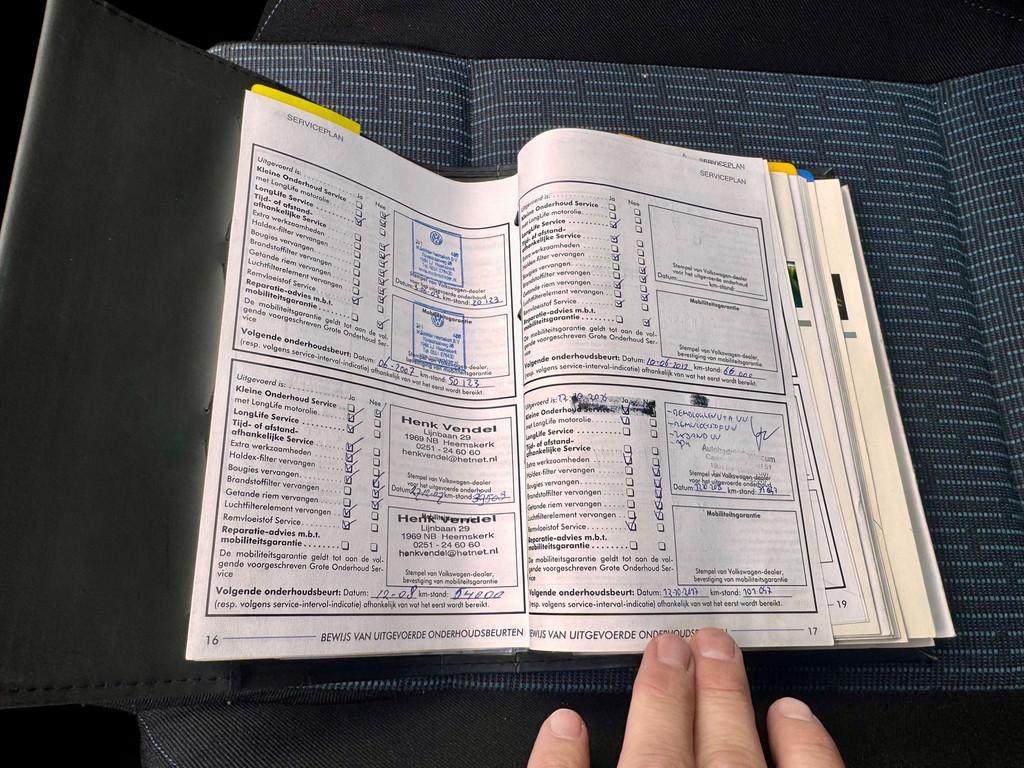 SERVICEPLAN
Uitgevoerd is: Ja Nee
Kleine Onderhoud Service
met LongLife motorolie
LongLife Service
Tijd- of afstand-
afhankelijke Service
Extra werkzaamheden
Haldex-filter vervangen
Bougies vervangen
Brandstoffilter vervangen
Getande riem vervangen
Luchtfilterelement vervangen
Remvloeistof Service
Reparatie-advies m.b.t.
mobiliteitsgarantie
De mobiliteitsgarantie geldt tot aan de vol-
gende voorgeschreven Grote Onderhoud Ser-
vice
Stempel van Volkswagen-dealer
voor het uitgevoerde onderhoud
Datum: km-stand: 20 123
Mobiliteitsgarantie
Stempel van Volkswagen-dealer,
bevestiging van mobiliteitsgarantie
Volgende onderhoudsbeurt: Datum: 06-2007 km-stand: 50 123
(resp. volgens service-interval-indicatie) afhankelijk van wat het eerst wordt bereikt.
Uitgevoerd is: Ja Nee
Kleine Onderhoud Service
met LongLife motorolie
LongLife Service
Tijd- of afstand-
afhankelijke Service
Extra werkzaamheden
Haldex-filter vervangen
Bougies vervangen
Brandstoffilter vervangen
Getande riem vervangen
Luchtfilterelement vervangen
Remvloeistof Service
Reparatie-advies m.b.t.
mobiliteitsgarantie
De mobiliteitsgarantie geldt tot aan de vol-
gende voorgeschreven Grote Onderhoud Ser-
vice
Henk Vendel
Lijnbaan 29
1969 NB Heemskerk
0251 - 24 60 60
henkvendel@hetnet.nl
Stempel van Volkswagen-dealer
voor het uitgevoerde onderhoud
Datum: km-stand:
Mobiliteitsgarantie
Henk Vendel
Lijnbaan 29
1969 NB Heemskerk
0251 - 24 60 60
henkvendel@hetnet.nl
Stempel van Volkswagen-dealer,
bevestiging van mobiliteitsgarantie
Volgende onderhoudsbeurt: Datum: 12-08 km-stand: 54000
(resp. volgens service-interval-indicatie) afhankelijk van wat het eerst wordt bereikt.
16 BEWIJS VAN UITGEVOERDE ONDERHOUDSBEURTEN
SERVICEPLAN
SERVICEPLAN
Uitgevoerd is: Ja Nee
Kleine Onderhoud Service
met LongLife motorolie
LongLife Service
Tijd- of afstand-
afhankelijke Service
Extra werkzaamheden
Haldex-filter vervangen
Bougies vervangen
Brandstoffilter vervangen
Getande riem vervangen
Luchtfilterelement vervangen
Remvloeistof Service
Reparatie-advies m.b.t.
mobiliteitsgarantie
De mobiliteitsgarantie geldt tot aan de vol-
gende voorgeschreven Grote Onderhoud Ser-
vice
Stempel van Volkswagen-dealer
voor het uitgevoerde onderhoud
Datum: km-stand:
Mobiliteitsgarantie
Stempel van Volkswagen-dealer,
bevestiging van mobiliteitsgarantie
Volgende onderhoudsbeurt: Datum: 10-06-2012 km-stand: 66.000
(resp. volgens service-interval-indicatie) afhankelijk van wat het eerst wordt bereikt.
Uitgevoerd is: Ja
Kleine Onderhoud Service
met LongLife motorolie
LongLife Service
Tijd- of afstand-
afhankelijke Service
Extra werkzaamheden
Haldex-filter vervangen
Bougies vervangen
Brandstoffilter vervangen
Getande riem vervangen
Luchtfilterelement vervangen
Remvloeistof Service
Reparatie-advies m.b.t.
mobiliteitsgarantie
De mobiliteitsgarantie geldt tot aan de vol-
gende voorgeschreven Grote Onderhoud Ser-
vice
Stempel van Volkswagen-dealer
voor het uitgevoerde onderhoud
Datum: km-stand:
Mobiliteitsgarantie
Stempel van Volkswagen-dealer,
bevestiging van mobiliteitsgarantie
Volgende onderhoudsbeurt: Datum: 12-10-2017 km-stand: 101.047
(resp. volgens service-interval-indicatie) afhankelijk van wat het eerst wordt bereikt.
WIJS VAN UITGEVOERDE ONDERHOUDSB 17
19